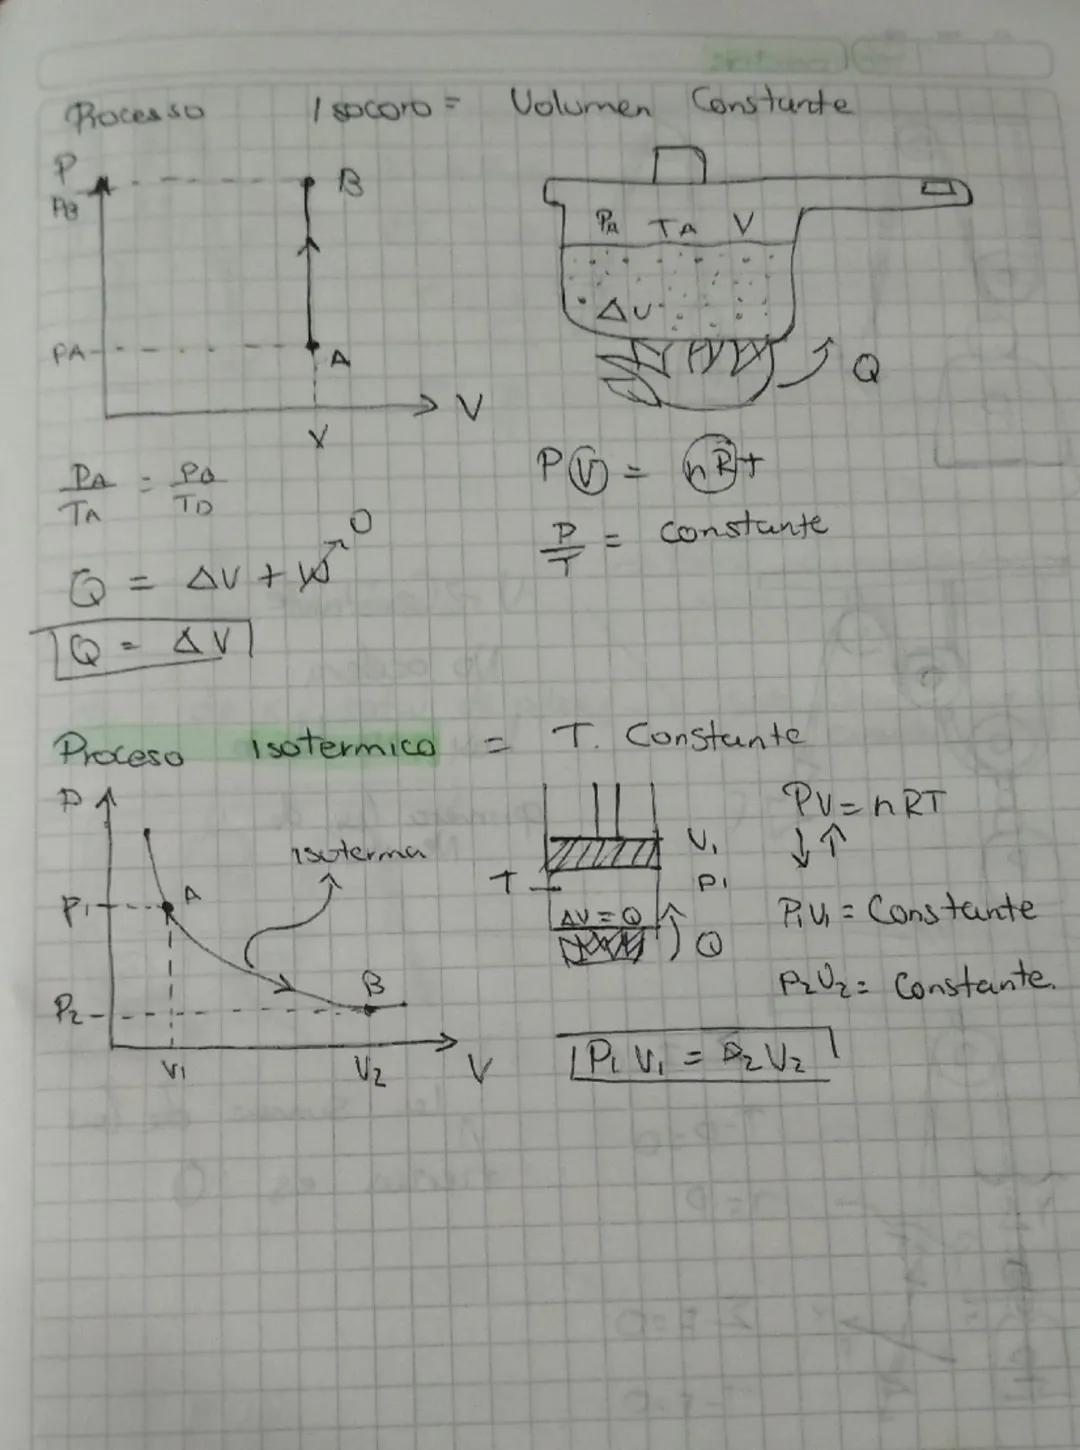 Processo Isocoro = Volumen Constante
P
PB
B
PA
A
V
V
PA TA V
ΔU
Q
PA/TA = PB/TD
PV = nRT
P/T = constante
Q = ΔV + W 0
Q = ΔV
Proceso isotermico = T. Constante
P
P1
A
isoterma
P2
B
V1
V2
V
T
V1
P1
ΔV = Q
Q
PV = nRT
P1V1 = Constante
P2V2 = Constante.
P1 V1 = P2 V2